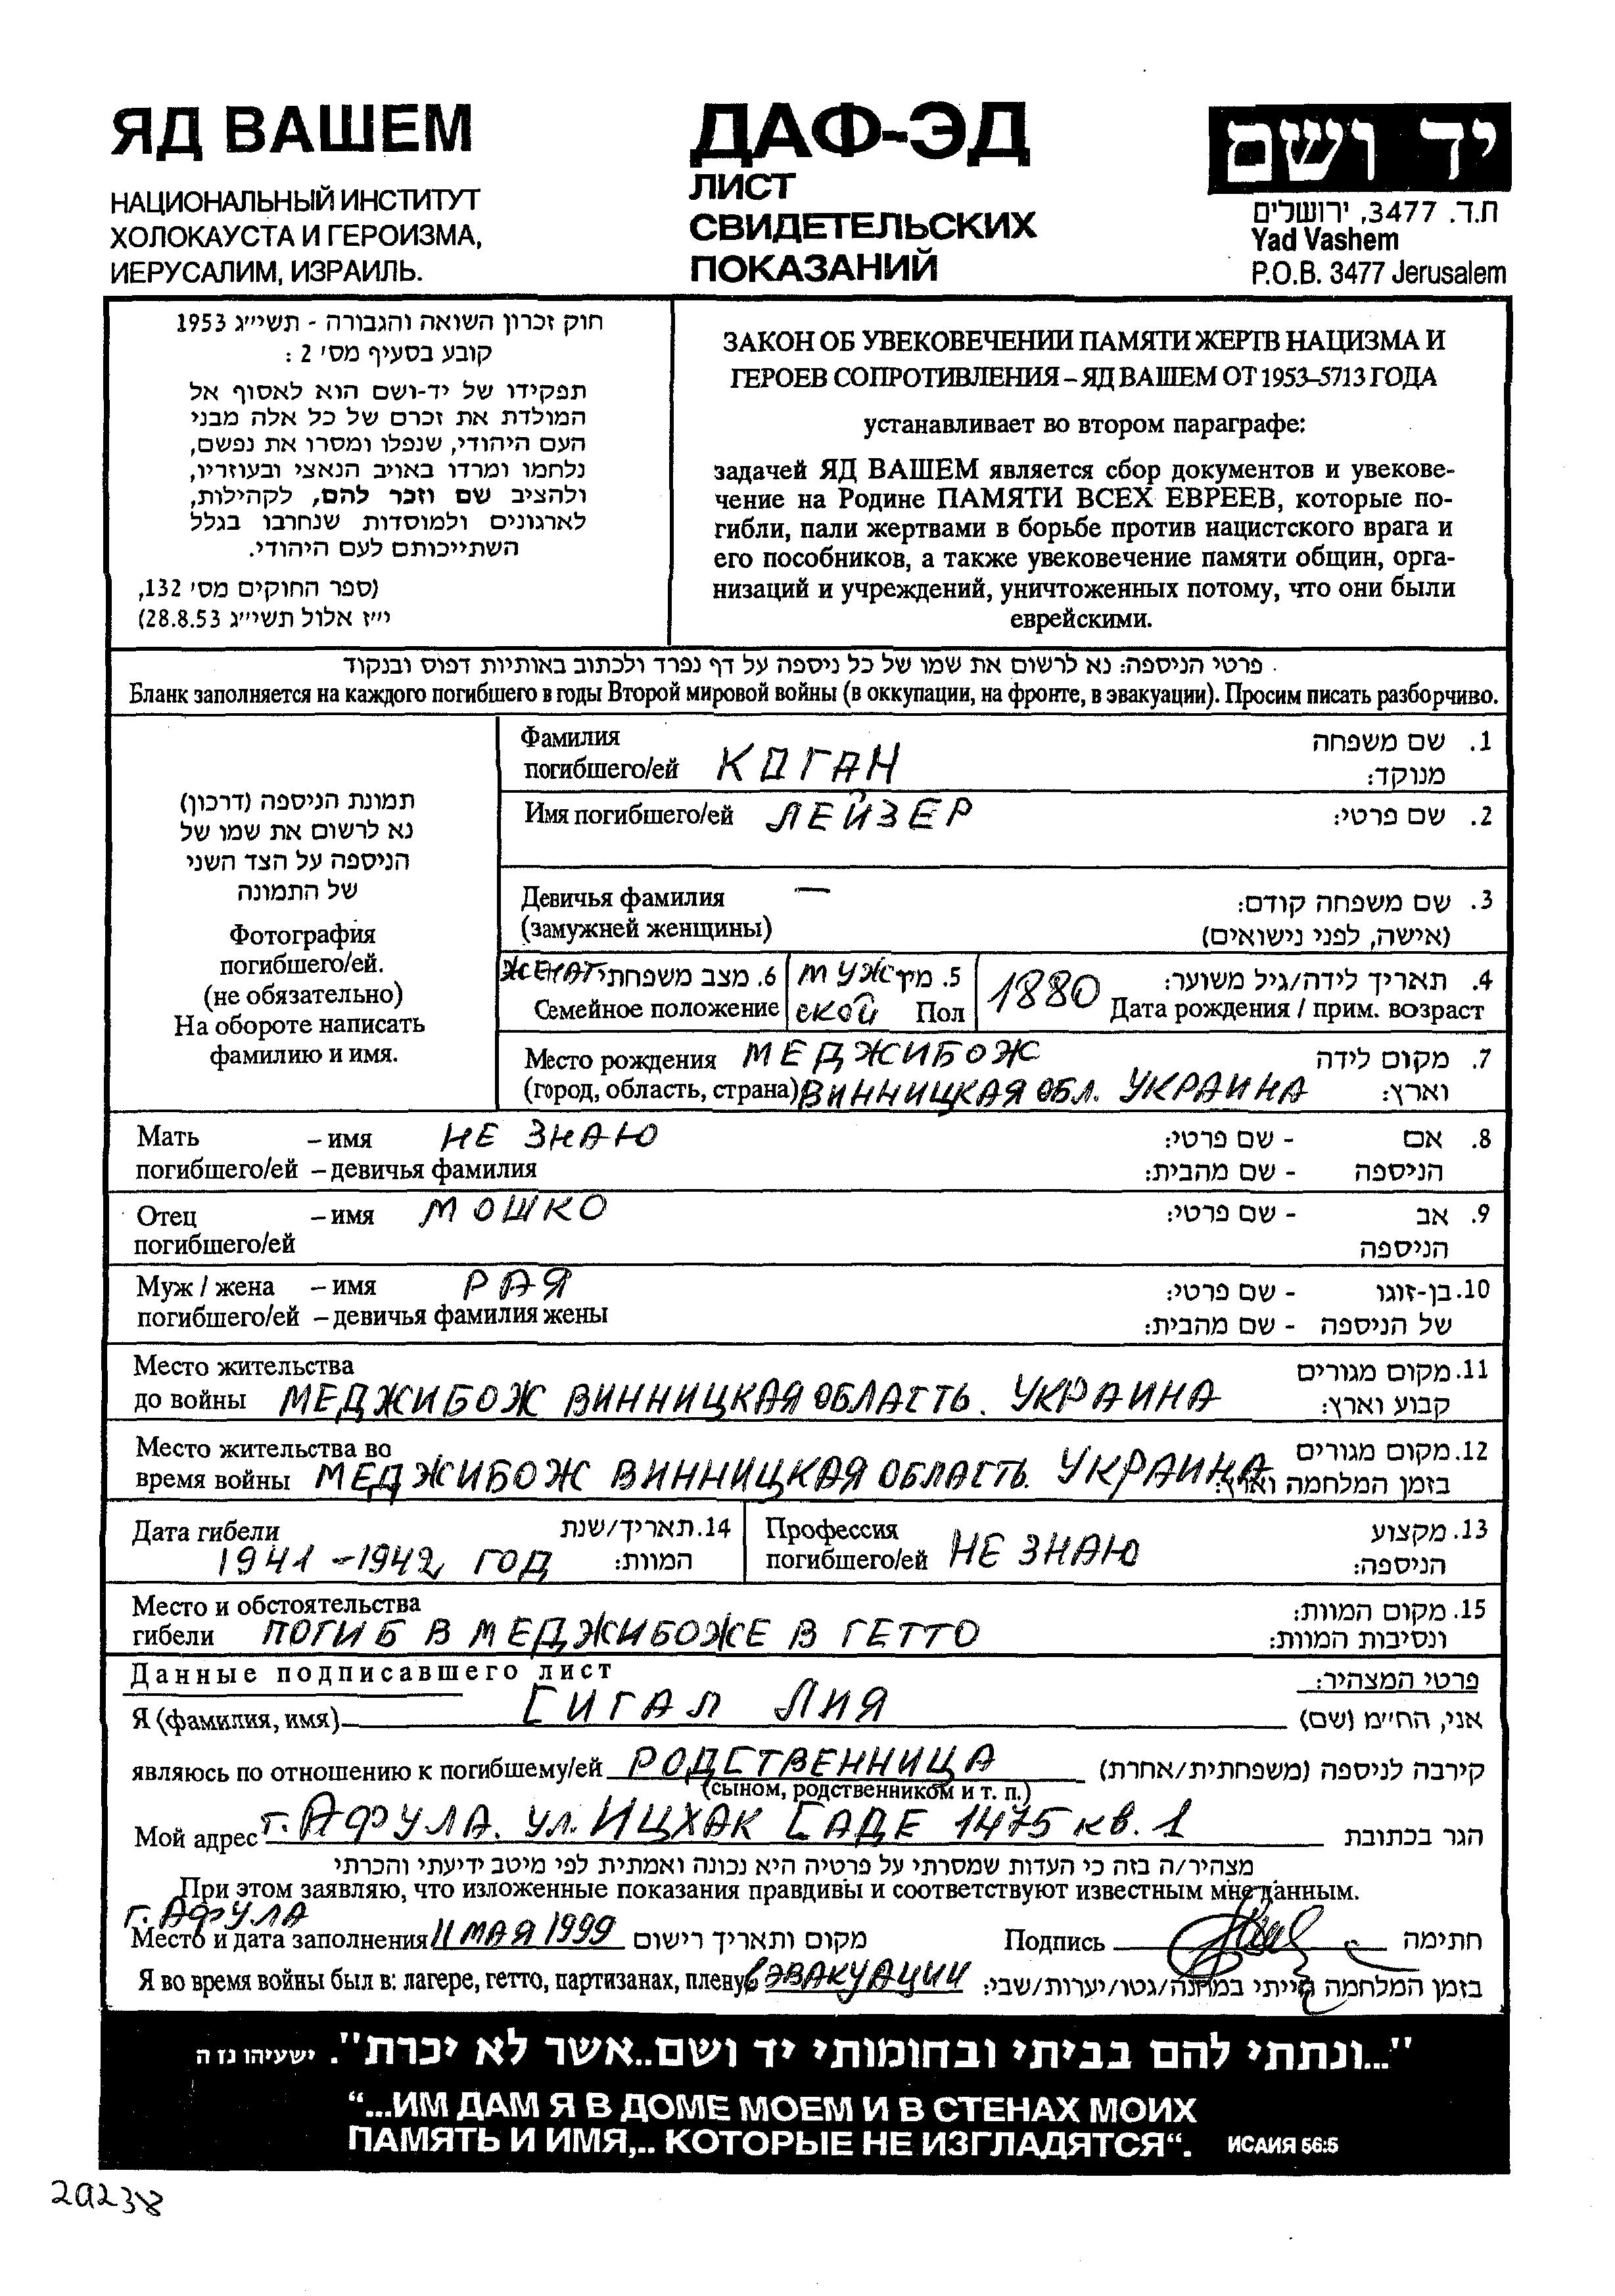 ЯД ВАШЕМ
НАЦИОНАЛЬНЫЙ ИНСТИТУТ
ХОЛОКАУСТА И ГЕРОИЗМА,
ИЕРУСАЛИМ, ИЗРАИЛЬ.
ДАФ-ЭД
ЛИСТ
СВИДЕТЕЛЬСКИХ
ПОКАЗАНИЙ
יד ושם
ת.ד. 3477, ירושלים
Yad Vashem
P.O.B. 3477 Jerusalem
חוק זכרון השואה והגבורה - תשי״ג 1953
קובע בסעיף מס׳ 2 :
תפקידו של יד-ושם הוא לאסוף אל
המולדת את זכרם של כל אלה מבני
העם היהודי, שנפלו ומסרו את נפשם,
נלחמו ומרדו באויב הנאצי ובעוזריו,
ולהציב שם וזכר להם, לקהילות,
לארגונים ולמוסדות שנחרבו בגלל
השתייכותם לעם היהודי.
(ספר החוקים מס׳ 132,
י״ז אלול תשי״ג 28.8.53)
ЗАКОН ОБ УВЕКОВЕЧЕНИИ ПАМЯТИ ЖЕРТВ НАЦИЗМА И
ГЕРОЕВ СОПРОТИВЛЕНИЯ – ЯД ВАШЕМ ОТ 1953–5713 ГОДА
устанавливает во втором параграфе:
задачей ЯД ВАШЕМ является сбор документов и увекове-
чение на Родине ПАМЯТИ ВСЕХ ЕВРЕЕВ, которые по-
гибли, пали жертвами в борьбе против нацистского врага и
его пособников, а также увековечение памяти общин, орга-
низаций и учреждений, уничтоженных потому, что они были
еврейскими.
פרטי הניספה: נא לרשום את שמו של כל ניספה על דף נפרד ולכתוב באותיות דפוס ובנקוד
Бланк заполняется на каждого погибшего в годы Второй мировой войны (в оккупации, на фронте, в эвакуации). Просим писать разборчиво.
תמונת הניספה (דרכון)
נא לרשום את שמו של
הניספה על הצד השני
של התמונה
Фотография
погибшего/ей.
(не обязательно)
На обороте написать
фамилию и имя.
Фамилия 1. שם משפחה
погибшего/ей КОГАН מנוקד:
Имя погибшего/ей ЛЕЙЗЕР 2. שם פרטי:
Девичья фамилия — 3. שם משפחה קודם:
(замужней женщины) (אישה, לפני נישואים)
ЖЕНАТ 6. מצב משפחתי МУЖ 5. מין 4. תאריך לידה/גיל משוער:
Семейное положение СКОЙ Пол 1880 Дата рождения / прим. возраст
Место рождения МЕДЖИБОЖ 7. מקום לידה
(город, область, страна) ВИННИЦКАЯ ОБЛ. УКРАИНА וארץ:
Мать – имя НЕ ЗНАЮ 8. אם - שם פרטי:
погибшего/ей – девичья фамилия הניספה - שם מהבית:
Отец – имя МОШКО 9. אב - שם פרטי:
погибшего/ей הניספה
Муж / жена – имя РАЯ 10. בן-זוגו - שם פרטי:
погибшего/ей – девичья фамилия жены של הניספה - שם מהבית:
Место жительства 11. מקום מגורים
до войны МЕДЖИБОЖ ВИННИЦКАЯ ОБЛАСТЬ. УКРАИНА קבוע וארץ:
Место жительства во 12. מקום מגורים
время войны МЕДЖИБОЖ ВИННИЦКАЯ ОБЛАСТЬ. УКРАИНА בזמן המלחמה וארץ:
Дата гибели 14. תאריך/שנת Профессия 13. מקצוע
1941 – 1942 ГОД המוות: погибшего/ей НЕ ЗНАЮ הניספה:
Место и обстоятельства 15. מקום המוות:
гибели ПОГИБ В МЕДЖИБОЖЕ В ГЕТТО ונסיבות המוות:
Данные подписавшего лист פרטי המצהיר:
Я (фамилия, имя) СИГАЛ ЛИЯ אני, החי״מ (שם)
являюсь по отношению к погибшему/ей РОДСТВЕННИЦА קירבה לניספה (משפחתית/אחרת)
(сыном, родственником и т. п.)
Мой адрес г. АФУЛА. ул. ИЦХАК САДЕ 1475 кв. 1 הגר בכתובת
מצהיר/ה בזה כי העדות שמסרתי על פרטיה היא נכונה ואמתית לפי מיטב ידיעתי והכרתי
При этом заявляю, что изложенные показания правдивы и соответствуют известным мне данным.
г. АФУЛА
Место и дата заполнения 11 МАЯ 1999 מקום ותאריך רישום Подпись חתימה
Я во время войны был в: лагере, гетто, партизанах, плену в ЭВАКУАЦИИ בזמן המלחמה הייתי במחנה/גטו/יערות/שבי:
"...ונתתי להם בביתי ובחומותי יד ושם..אשר לא יכרת". ישעיהו נז ה
“...ИМ ДАМ Я В ДОМЕ МОЕМ И В СТЕНАХ МОИХ
ПАМЯТЬ И ИМЯ,.. КОТОРЫЕ НЕ ИЗГЛАДЯТСЯ“. ИСАИЯ 56:5